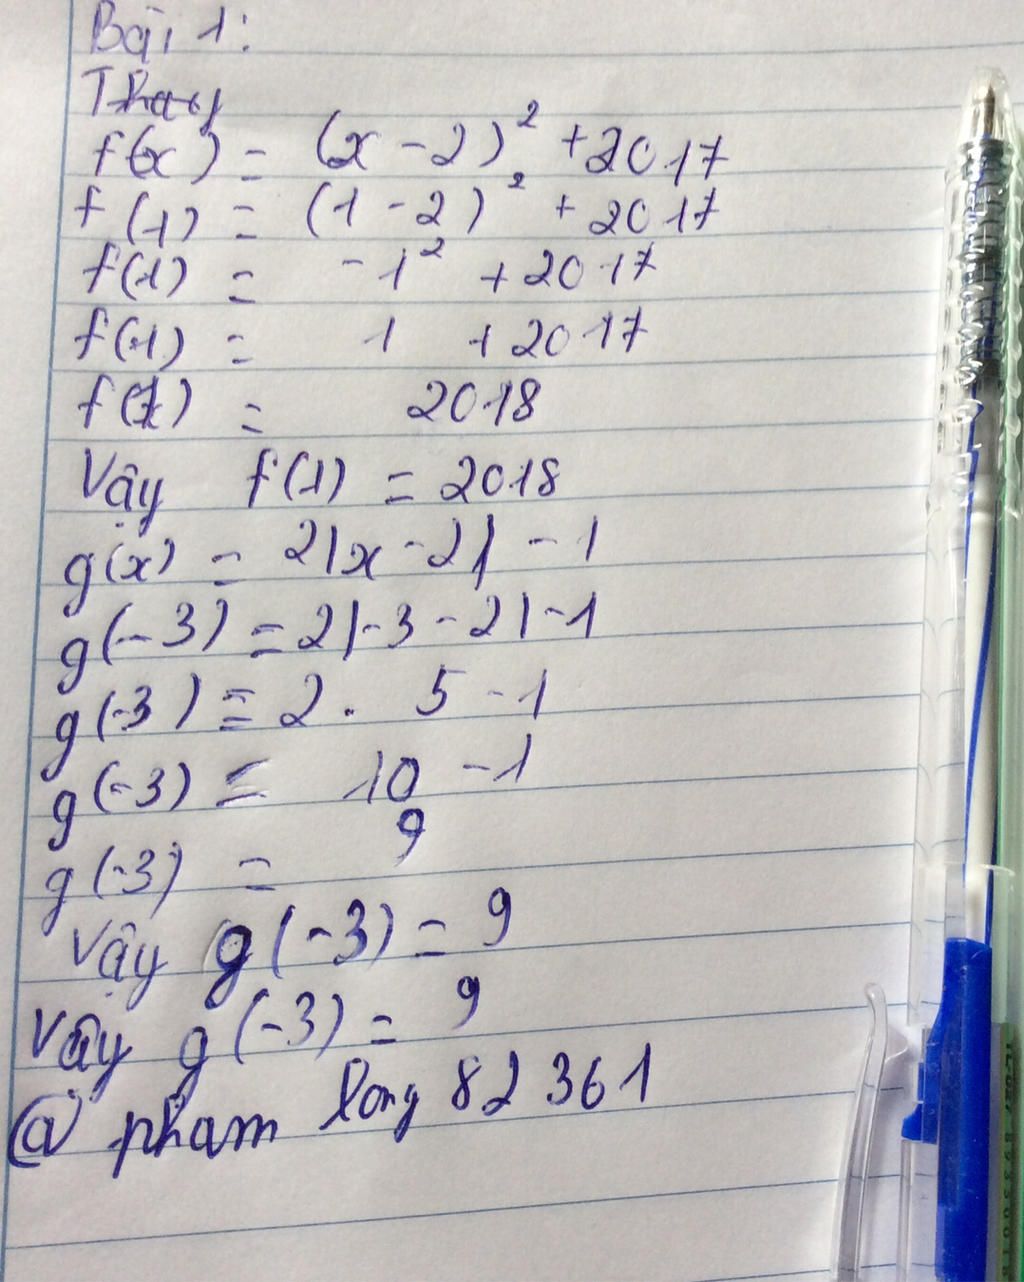 Bài 1:
Thay
f(x) = (x - 2)² + 2017
f(1) = (1 - 2)² + 2017
f(1) = -1² + 2017
f(1) = 1 + 2017
f(1) = 2018
Vậy f(1) = 2018
g(x) = 2|x - 2| - 1
g(-3) = 2|-3 - 2| - 1
g(-3) = 2. 5 - 1
g(-3) = 10 - 1
g(-3) = 9
Vậy g(-3) = 9
Vậy g(-3) = 9
@ phạm long 82361